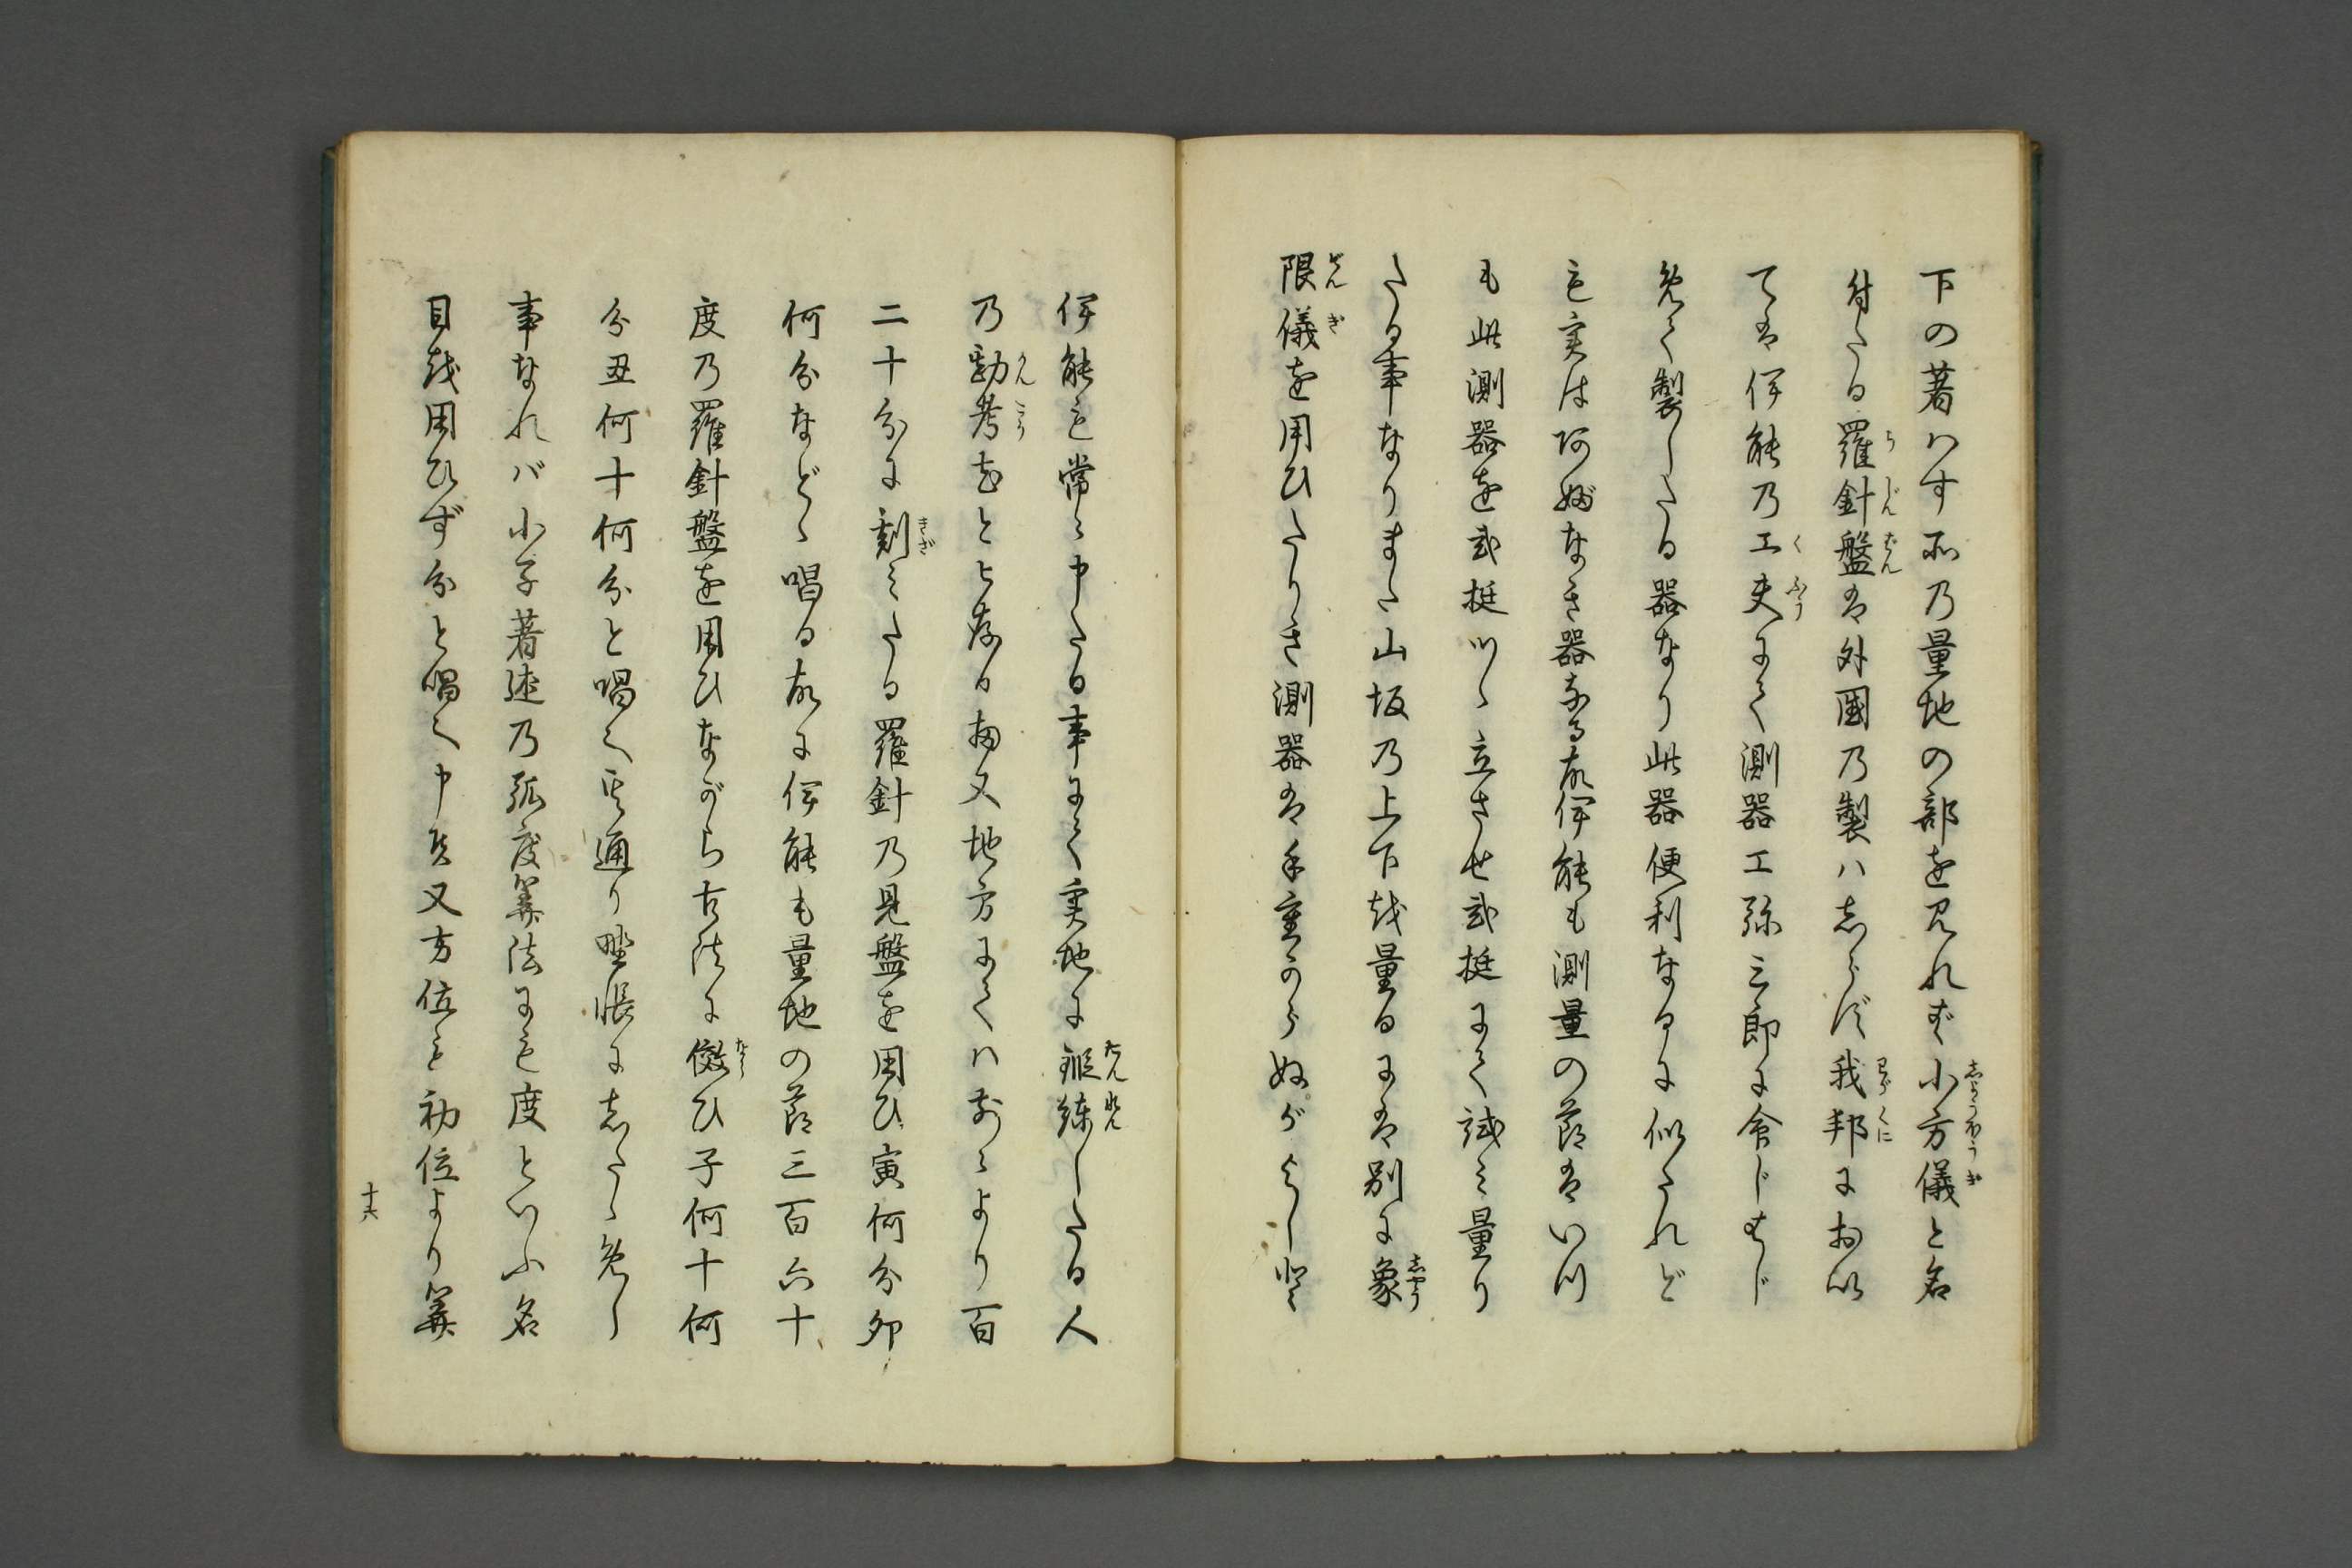 下の著ハす所乃量地の部を見れず小方儀と名
付たる羅針盤は外國乃製ハしらず我邦におい
ては伊能乃工夫にて測器工弥三郎に命じはじ
めて製したる器なり此器便利なるに似たれど
も実は なき器なる故伊能も測量の節はいつ
も此測器を弐挺ツヽ立させ弐挺にて試ミ量り
たる事なりまた山坂乃上下を量るには別に象
限儀を用ひたりき測器は手重のらぬがよしと
伊能も常々申たる事にて実地に鍛練したる人
乃勘考だと 存る 又地方にてハ前々より百
二十分に刻ミたる羅針乃見盤を用ひ寅何分卯
何分などゝ唱る故に伊能も量地の節三百六十
度乃羅針盤を用ひながら古法に傚ひ子何十何
分丑何十何分と唱へ其通り野帳にしたゝめし
事なれバ小子著述乃弧度筭法にも度といふ名
目を用ひず分と唱へ申候又方位も初位より筭
十六